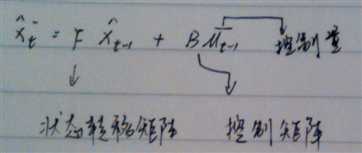 x̂ₜ⁻ = F x̂ₜ₋₁ + B uₜ₋₁ 控制量
状态转移矩阵 控制矩阵